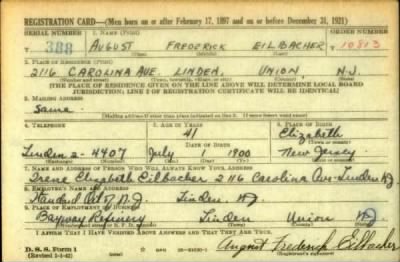 REGISTRATION CARD—(Men born on or after February 17, 1897 and on or before December 31, 1921)
SERIAL NUMBER 1. NAME (Print) ORDER NUMBER
388 AUGUST FREDERICK EILBACHER 10813
(First) (Middle) (Last)
2. PLACE OF RESIDENCE (Print)
2116 CAROLINA AVE. LINDEN, UNION, N.J.
(Number and street) (Town, township, village, or city) (County) (State)
[THE PLACE OF RESIDENCE GIVEN ON THE LINE ABOVE WILL DETERMINE LOCAL BOARD
JURISDICTION; LINE 2 OF REGISTRATION CERTIFICATE WILL BE IDENTICAL]
3. MAILING ADDRESS
Same
[Mailing address if other than place indicated on line 2. If same insert word same]
4. TELEPHONE 5. AGE IN YEARS 6. PLACE OF BIRTH
41 Elizabeth
DATE OF BIRTH (Town or county)
Linden 2-4407 July 1 1900 New Jersey
(Exchange) (Number) (Mo.) (Day) (Yr.) (State or country)
7. NAME AND ADDRESS OF PERSON WHO WILL ALWAYS KNOW YOUR ADDRESS
Irene Elizabeth Eilbacher 2116 Carolina Ave-Linden NJ
8. EMPLOYER'S NAME AND ADDRESS
Standard Oil of N.J. Linden. NJ
9. PLACE OF EMPLOYMENT OR BUSINESS
Bayway Refinery Linden Union NJ
(Number and street or R. F. D. number) (Town) (County) (State)
I AFFIRM THAT I HAVE VERIFIED ABOVE ANSWERS AND THAT THEY ARE TRUE.
D. S. S. Form 1
August Frederick Eilbacher
(Registrant's signature)